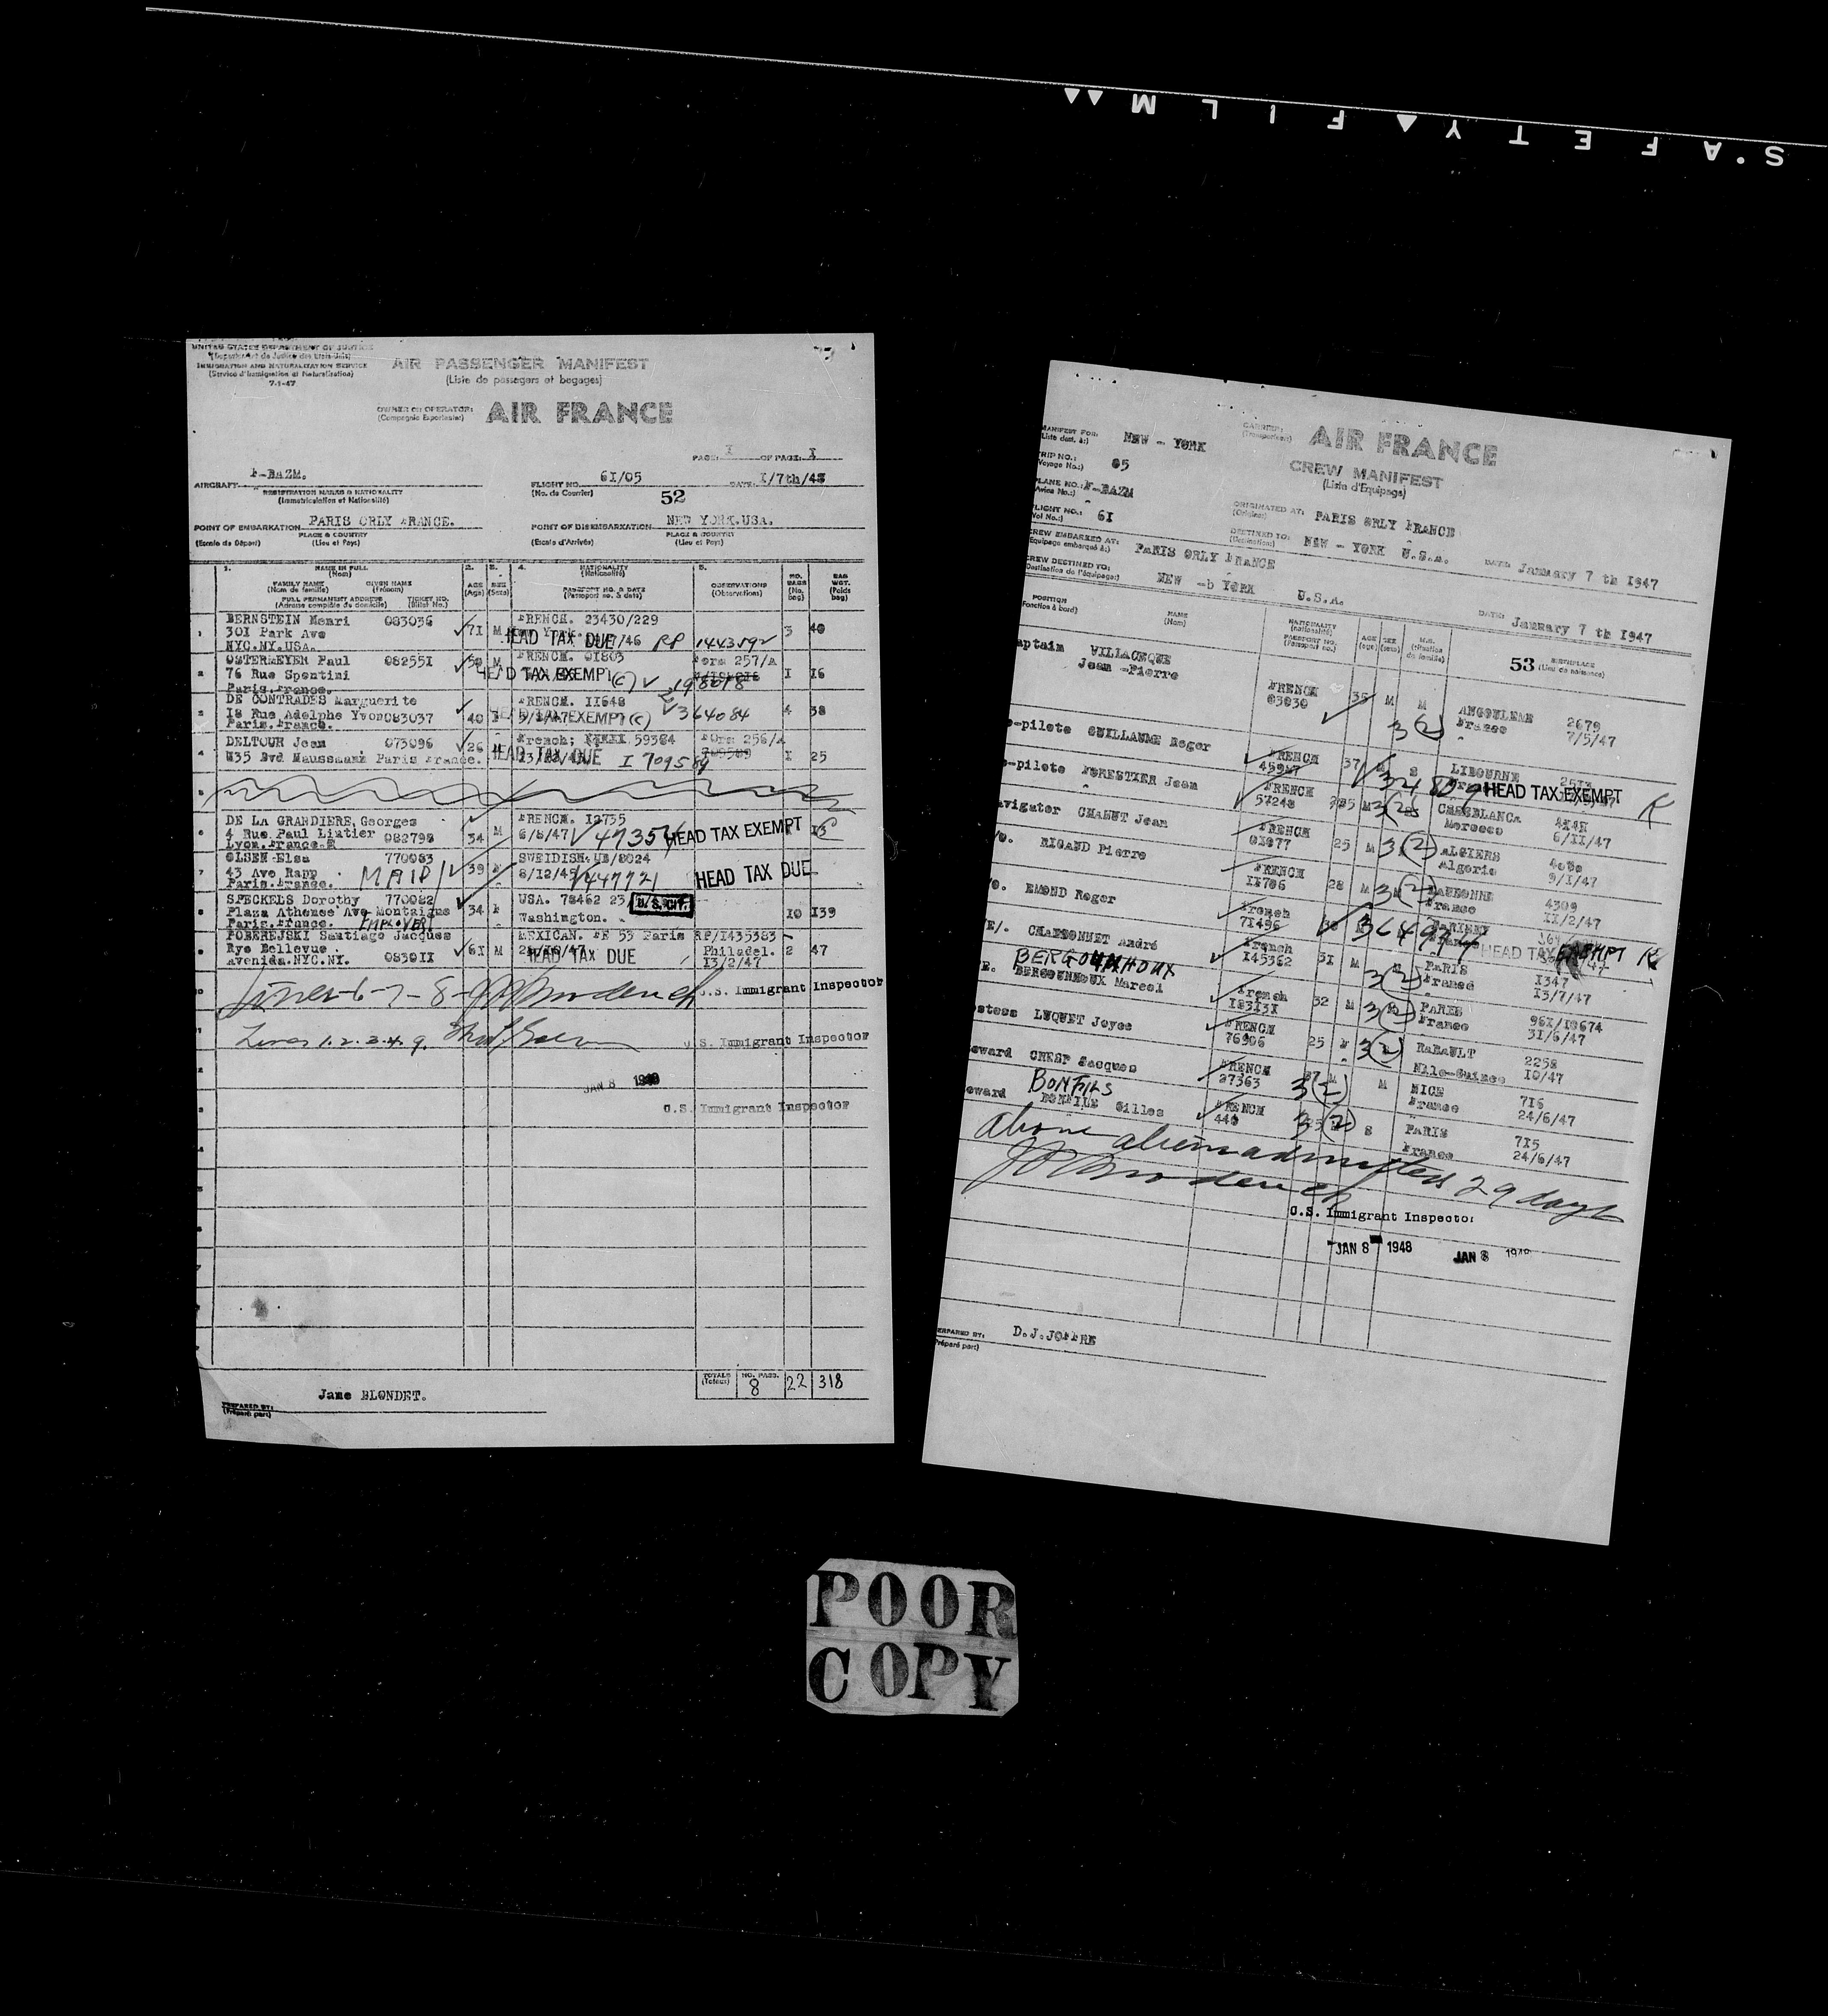 SAFETY FILM
UNITED STATES DEPARTMENT OF JUSTICE
(Departement de Justice des Etats-Unis)
IMMIGRATION AND NATURALIZATION SERVICE
(Service d'Immigration et Naturalisation)
7-1-47
AIR PASSENGER MANIFEST
(Liste de passagers et bagages)
OWNER OR OPERATOR:
(Compagnie Exportester)
AIR FRANCE
PAGE: I OF PAGE: I
AIRCRAFT F-BAZM.
REGISTRATION MARKS & NATIONALITY
(Immatriculation et Nationalité)
FLIGHT NO. 6I/05
(No. de Courrier)
52
DATE: I/7th/48
POINT OF EMBARKATION PARIS ORLY FRANCE.
(Escale de Départ)
PLACE & COUNTRY
(Lieu et Pays)
POINT OF DISEMBARKATION NEW YORK.USA.
(Escale d'Arrivée)
PLACE & COUNTRY
(Lieu et Pays)
1. NAME IN FULL
(Nom)
FAMILY NAME GIVEN NAME
(Nom de famille) (Prénom)
FULL PERMANENT ADDRESS TICKET NO.
(Adresse complète du domicile) (Billet No.)
2. AGE (Age)
3. SEX (Sexe)
4. NATIONALITY
(Nationalité)
PASSPORT NO. & DATE
(Passeport no. & date)
5. OBSERVATIONS
(Observations)
NO. BAGS (No. bag)
BAG WGT. (Poids bag)
1 BERNSTEIN Henri 083036 71 M FRENCH. 23430/229 3 40
30I Park Ave HEAD TAX DUE /46 RP 1443592
NYC.NY.USA.
2 OSTERMEYER Paul 08255I 50 M FRENCH. 0I803 Form 257/A I I6
76 Rue Spontini HEAD TAX EXEMPT (C) 198018
Paris.France.
3 DE CONTRADES Marguerite FRENCH. II648 4 38
I8 Rue Adolphe Yvon 083037 40 F EXEMPT (C) 364084
Paris.France.
4 DELTOUR Jean 073096 26 French; 59384 Form 256/A I 25
35 Bvd Haussmann Paris France. HEAD TAX DUE I 709589
5
6 DE LA GRANDIERE, Georges FRENCH. I2755
4 Rue Paul Lintier 082798 34 M 6/8/47 47354 HEAD TAX EXEMPT
Lyon.France.
7 OLSEN Elsa 770083 39 F SWEIDISH. /8024
43 Ave Rapp MAID 8/12/45 447721 HEAD TAX DUE
Paris.France.
8 SPECKELS Dorothy 770082 34 F USA. 78462 23 U.S. CIT.
Plaza Athenee Ave Montaigne Washington. I0 I39
Paris.France. EMPLOYER
9 POBEREJSKI Santiago Jacques MEXICAN. 53 Paris RP/I435383
Rye Bellevue 6I M HEAD TAX DUE Philadel. 2 47
Avenida.NYC.NY. 0830II I3/2/47
Lines-6-7-8-
U.S. Immigrant Inspector
Lines 1.2.3.4.9.
U.S. Immigrant Inspector
JAN 8 1948
U.S. Immigrant Inspector
TOTALS (Totaux) NO. PASS. 8 22 318
Jane BLONDET.
PREPARED BY:
(Préparé part)
MANIFEST FOR: NEW - YORK
(Liste dest. à:)
CARRIER:
(Transporteur)
AIR FRANCE
CREW MANIFEST
(Liste d'Equipage)
TRIP NO.: 05
(Voyage No.:)
PLANE NO.: F-BAZM
(Avion No.:)
FLIGHT NO.: 6I
(Vol No.:)
ORIGINATED AT: PARIS ORLY FRANCE
(Origine:)
DESTINED TO: NEW - YORK U.S.A.
(Destination:)
DATE: January 7 th I947
CREW EMBARKED AT: PARIS ORLY FRANCE
(Equipage embarqué à:)
CREW DESTINED TO: NEW -b YORK U.S.A.
(Destination de l'équipage:)
DATE: January 7 th I947
POSITION
(Fonction à bord)
NAME
(Nom)
NATIONALITY
(nationalité)
PASSPORT NO.
(Passeport no.)
AGE (age)
SEX (sexe)
M.S. (situation de famille)
53 BIRTHPLACE
(Lieu de naissance)
aptain VILLACEQUE FRENCH 35 M M ANGOULEME 2679
Jean -Pierre 03030 3(2) France 7/5/47
o-pilote GUILLAUME Roger FRENCH 37 M S LIBOURNE
HEAD TAX EXEMPT
o-pilote FORESTIER Jean FRENCH M CASABLANCA
57248 Morocco 6/II/47
avigator CHAHUT Jean FRENCH 25 M 3(2) ALGIERS
0I077 Algerie 9/I/47
RIGAUD Pierre FRENCH 28 M 3(2) 4309
II706 France II/2/47
EMOND Roger French
7I496 HEAD TAX EXEMPT
CHARBONNET André French 3I M PARIS I347
I45362 3(2) France I3/7/47
BERGOUNHOUX
BERGOUNHOUX Marcel French 32 M 3(2) PARIS 96I/I8674
I83I3I France 3I/6/47
ostess LUQUET Joyce FRENCH 25 F 3(2) RABAULT 2258
76906 Nlle-Guinee I0/47
eward CRESP Jacques FRENCH 37 M M NICE 7I6
27363 3(2) France 24/6/47
BONFILS
eward Gilles FRENCH 3(2) S PARIS 7I5
440 France 24/6/47
Above aliens admitted 29 days
U.S. Immigrant Inspector
JAN 8 1948 JAN 8 1948
PREPARED BY: D.J.JOFFRE
(Préparé part)
POOR
COPY